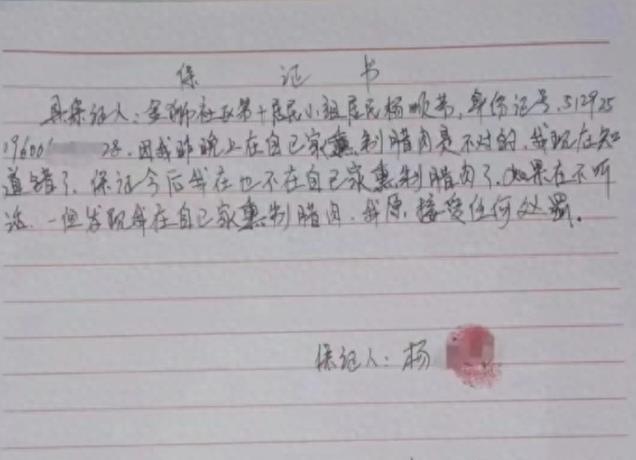 保证书
具保证人：金狮社区第十居民小组居民杨顺，身份证号，512925
19600 28，因我昨晚上在自己家熏制腊肉是不对的，我现在知
道错了，保证今后我在也不在自己家熏制腊肉了，如果在不听
话，一但发现我在自己家熏制腊肉，我愿接受任何处罚。
保证人：杨